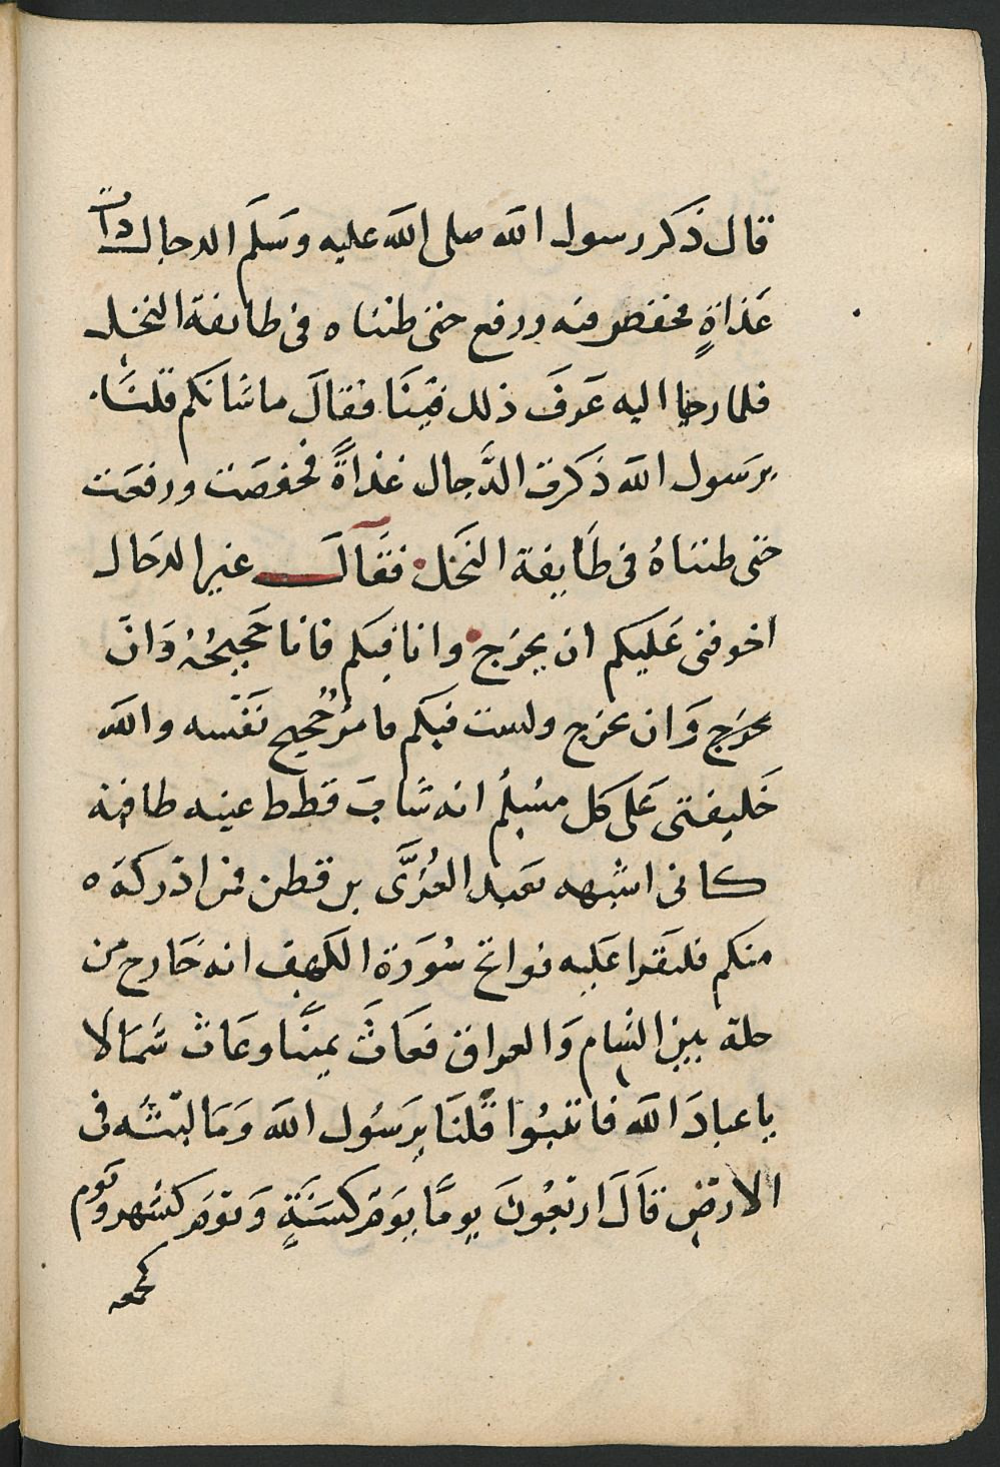 قال ذَكَر رسول الله صلى الله عليه وَسَلَّم الدجال ذات
غَذاةٍ مخفض فيه ورفع حتى ظنناه فى طائفة النخل
فلما رحنا اليه عَرفَ ذلك فِينَا فقالَ ما شانكم قلنَا
يرَسول الله ذَكَرت الدَّجال غذاةً فخفضت ورفعَت
حتى ظنناهُ فى طَايفة النَخل فقَالَ غير الدجال
اخوفنى عَليكم ان يخرج وانا فيكم فانا حَجيجُهُ وَان
يخرج وَان يخرج ولست فيكم فامرؤ حُجيج نَفْسه والله
خَليفتى عَلى كل مسُلم انه شابَ قطط عينه طافئه
كانى اشبهه بعَبد العُزَّى بن قطن فمن ادركه
منكم فليَقرا عَليه فواتح سُورَة الكَهف انه خَارج من
حلة بين الشام وَالعراق فعَاثَ يمينًا وعَاث شَمَالا
يا عبادَ الله فاثبتُوا قُلنَا يرَسُول الله وَمَا لبْثُه فى
الارضِ قَالَ اربَعُونَ يومًا يوَم كَسَنَةٍ وَيَوم كشَهر ويَوم
كجمعه